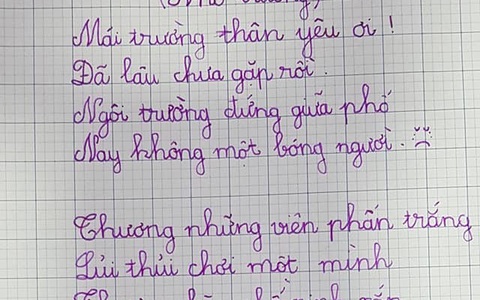 Mái trường thân yêu ơi!
Đã lâu chưa gặp rồi.
Ngôi trường đứng giữa phố
Nay không một bóng người.
Thương những viên phấn trắng
Lủi thủi chơi một mình